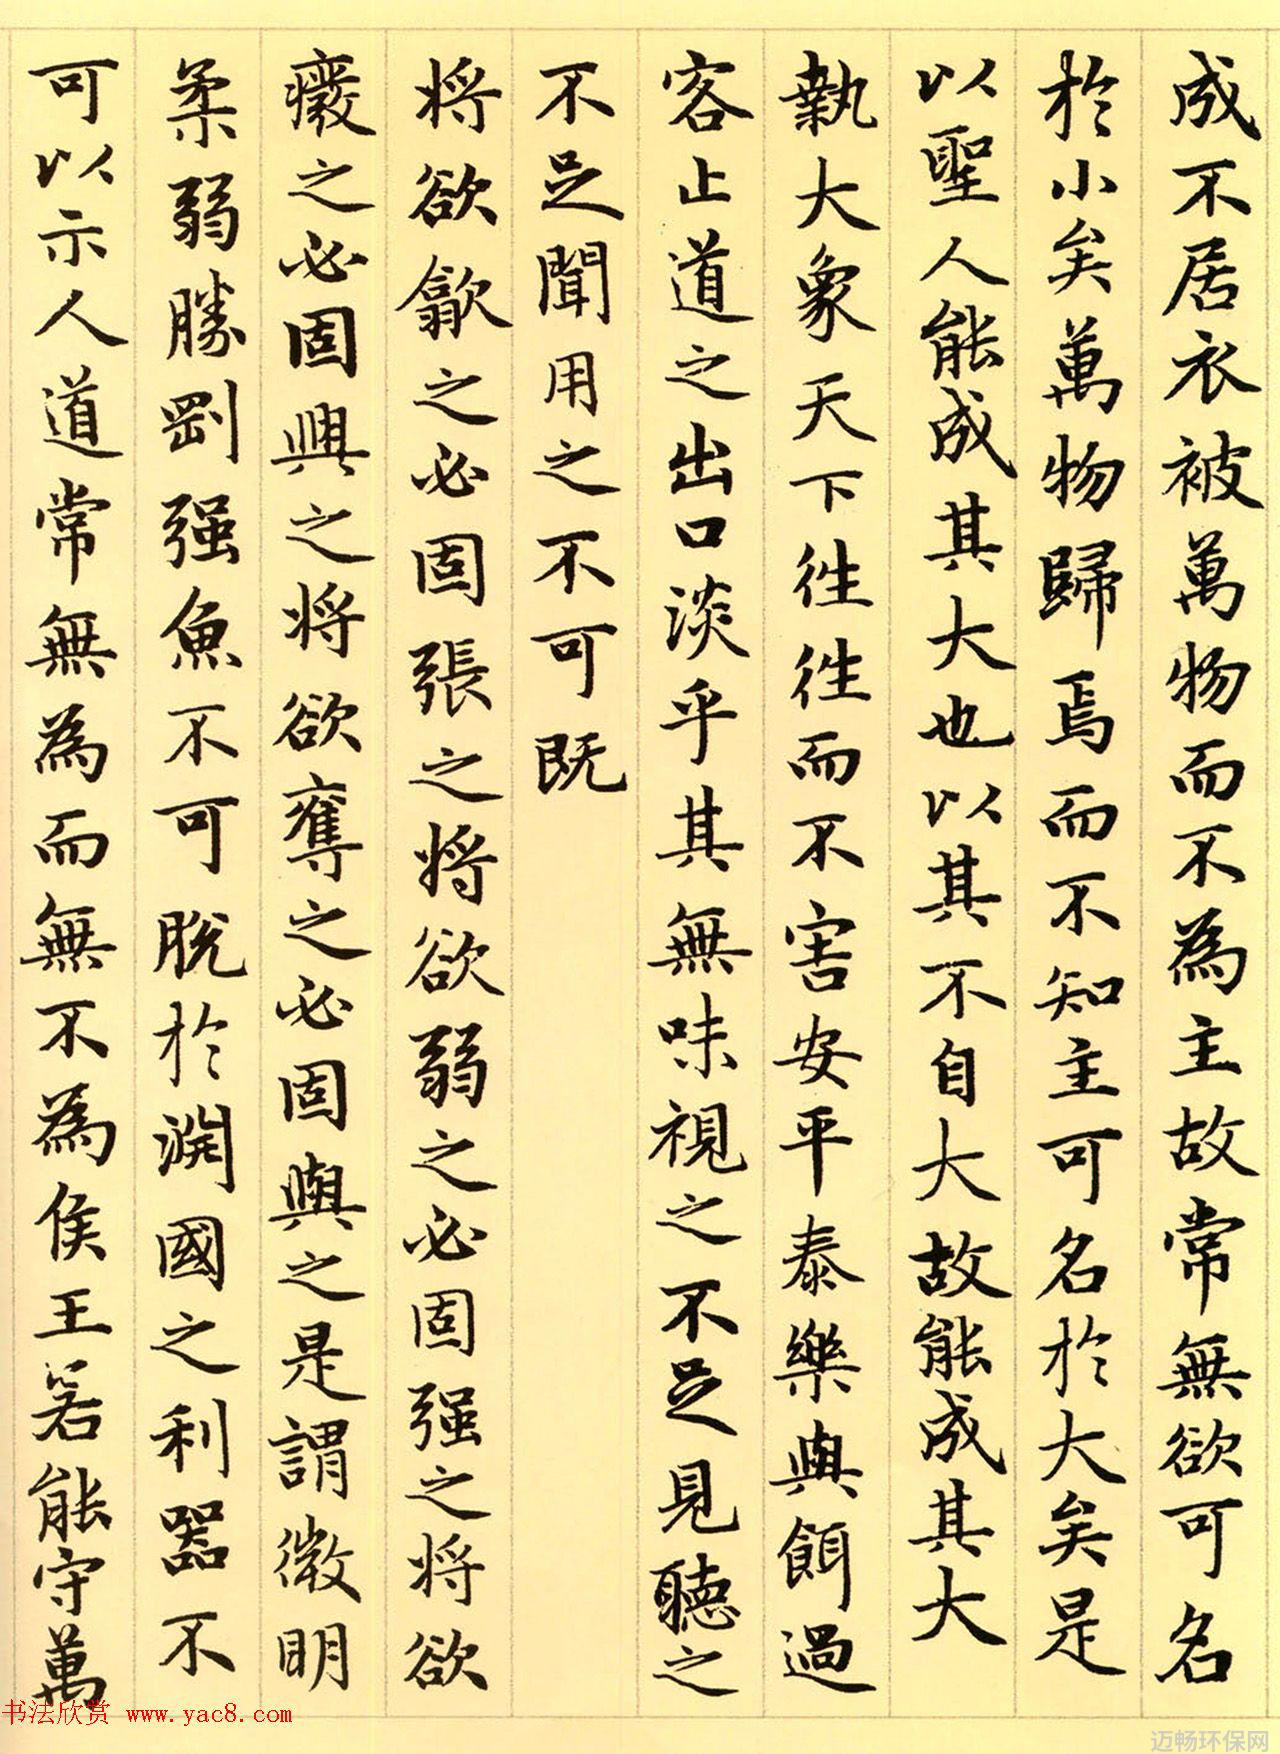 成不居衣被萬物而不為主故常無欲可名
於小矣萬物歸焉而不知主可名於大矣是
以聖人能成其大也以其不自大故能成其大
執大象天下往往而不害安平泰樂與餌過
客止道之出口淡乎其無味視之不足見聽之
不足聞用之不可既
将欲歙之必固張之将欲弱之必固强之将欲
廢之必固興之将欲奪之必固與之是謂微明
柔弱勝剛强魚不可脫於淵國之利器不
可以示人道常無為而無不為侯王若能守萬
书法欣赏 www.yac8.com
迈畅环保网